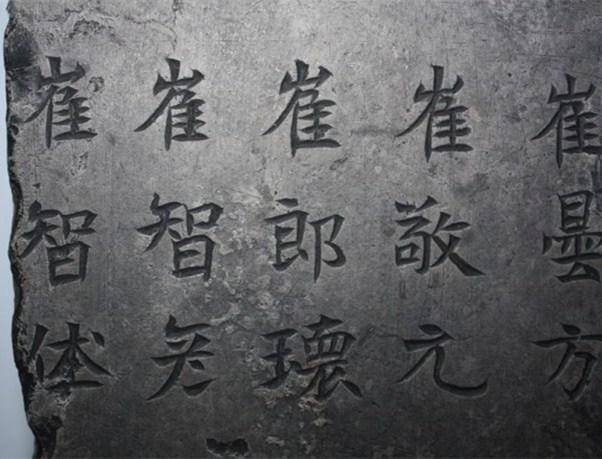 崔曇方
崔敬元
崔郎瓌
崔智
崔智